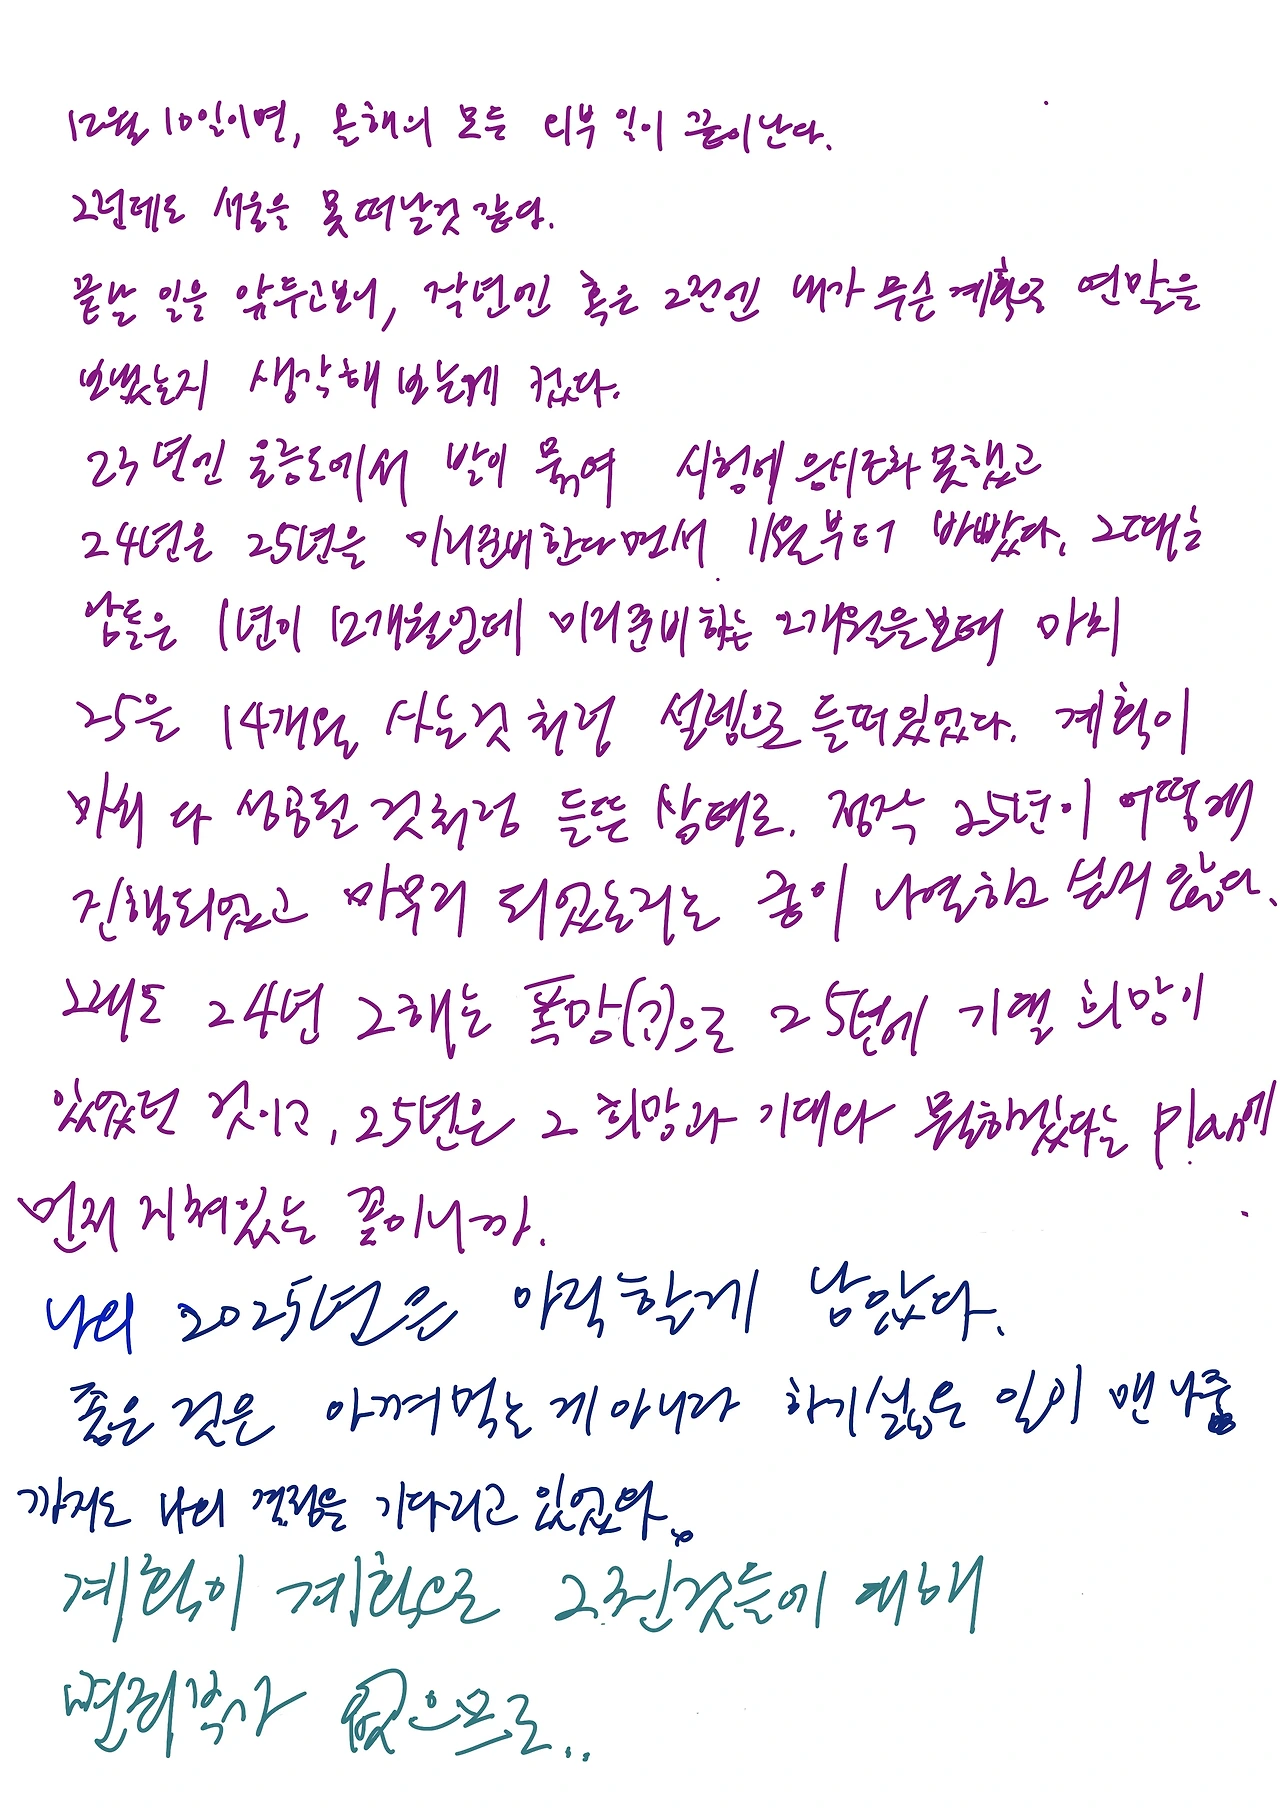 12월 10일이면, 올해의 모든 외부 일이 끝이난다.
그런데도 서울을 못 떠날것 같다.
끝날 일을 앞두고보니, 작년엔 혹은 그전엔 내가 무슨 계획으로 연말을
보냈는지 생각해 보는게 컸다.
23년엔 울릉도에서 발이 묶여 시험에 응시조차 못했고
24년은 25년을 미리준비한다면서 11월부터 바빴다. 그때는
남들은 1년이 12개월인데 미리준비하는 2개월을보태 마치
25은 14개월 사는것처럼 설렘으로 들떠있었다. 계획이
마치 다 성공된 것처럼 든든 상태로. 정작 25년이 어떻게
진행되었고 마무리 되었는지는 굳이 나열하고 싶지 않다.
그래도 24년 그해는 폭망(?)으로 25년에 기댈 희망이
있었던 것이고, 25년은 그 희망과 기대라 뭘하겠다는 plan에
먼저 지쳐있는 꼴이니까.
나의 2025년은 야릭할게 남았다.
좋은 것은 아껴먹는게아니라 하기싫은 일이 맨 나중
까지도 나의 결정을 기다리고 있었다.
계획이 계획으로 그친것들에 대해
면역력가 없으므로..